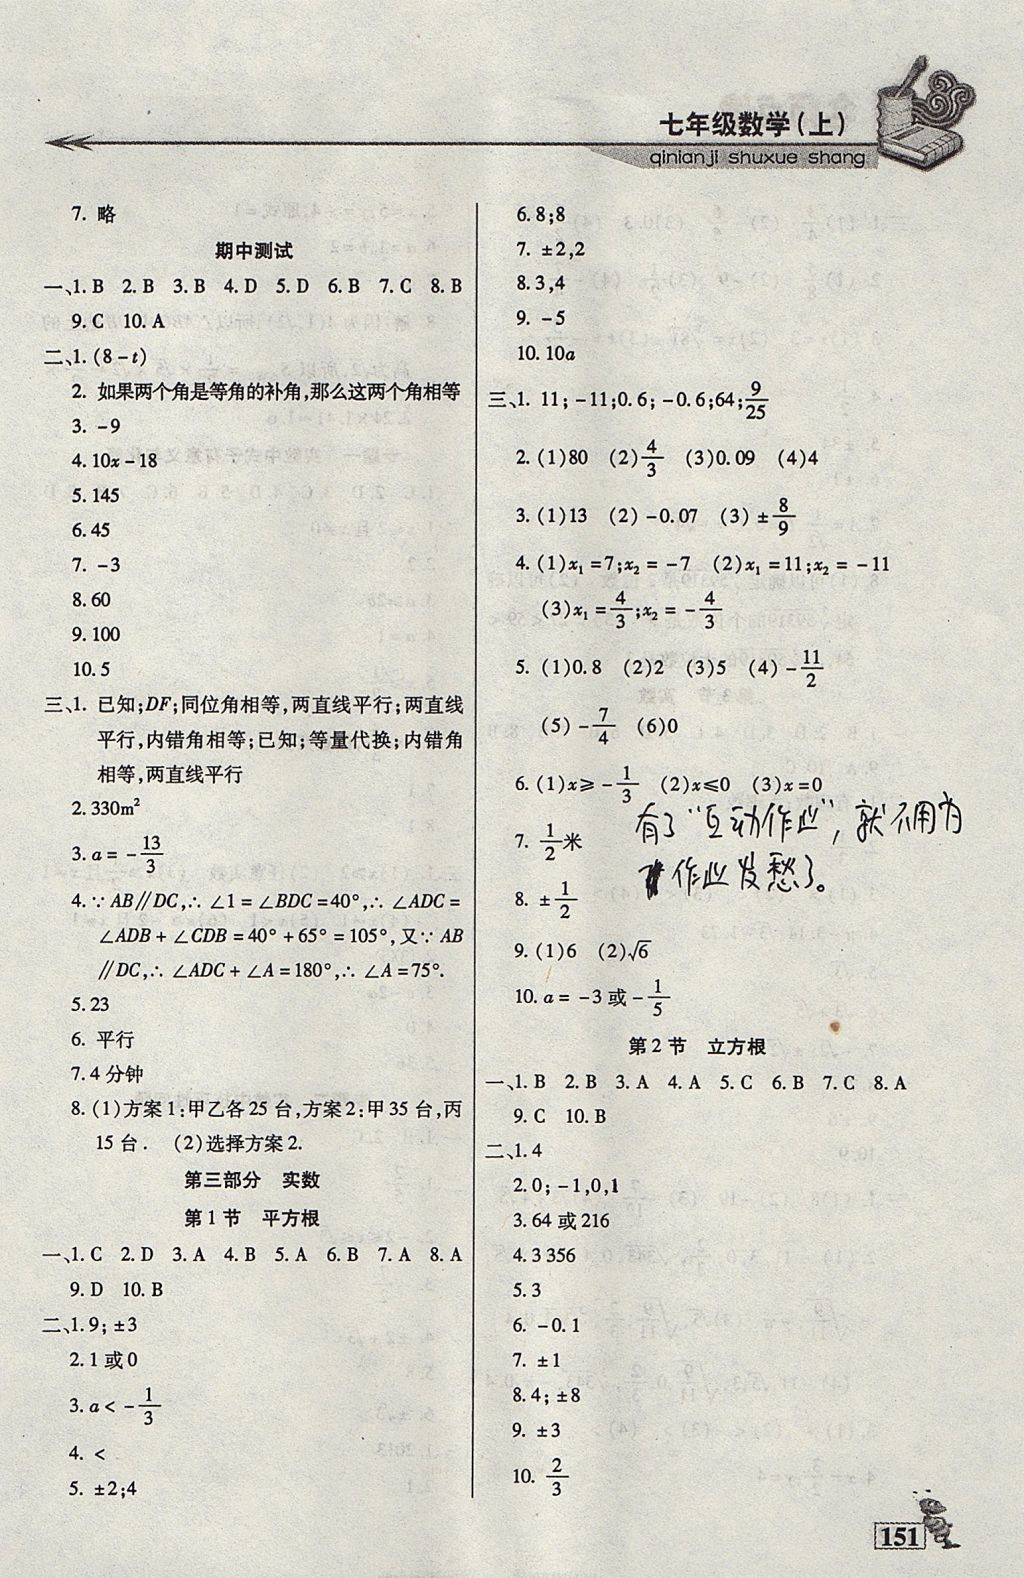 七年级数学(上)
qinianji shuxue shang
7. 略
期中测试
一、1. B 2. B 3. B 4. D 5. D 6. B 7. C 8. B
9. C 10. A
二、1. (8-t)
2. 如果两个角是等角的补角,那么这两个角相等
3. -9
4. 10x-18
5. 145
6. 45
7. -3
8. 60
9. 100
10. 5
三、1. 已知;DF;同位角相等,两直线平行;两直线
平行,内错角相等;已知;等量代换;内错角
相等,两直线平行
2. 330m²
3. a=-13/3
4. ∵AB∥DC,∴∠1=∠BDC=40°,∴∠ADC=
∠ADB+∠CDB=40°+65°=105°,又∵AB
∥DC,∴∠ADC+∠A=180°,∴∠A=75°.
5. 23
6. 平行
7. 4分钟
8. (1)方案1:甲乙各25台,方案2:甲35台,丙
15台. (2)选择方案2.
第三部分 实数
第1节 平方根
一、1. C 2. D 3. A 4. B 5. A 6. B 7. A 8. A
9. D 10. B
二、1. 9;±3
2. 1或0
3. a<-1/3
4. <
5. ±2;4
6. 8;8
7. ±2,2
8. 3,4
9. -5
10. 10a
三、1. 11;-11;0.6;-0.6;64;9/25
2. (1)80 (2)4/3 (3)0.09 (4)4
3. (1)13 (2)-0.07 (3)±8/9
4. (1)x₁=7;x₂=-7 (2)x₁=11;x₂=-11
(3)x₁=4/3;x₂=-4/3
5. (1)0.8 (2)2 (3)5 (4)-11/2
(5)-7/4 (6)0
6. (1)x≥-1/3 (2)x≤0 (3)x=0
7. 1/2米
有了"互动作业",就不用为
作业发愁了。
8. ±1/2
9. (1)6 (2)√6
10. a=-3或-1/5
第2节 立方根
一、1. B 2. B 3. A 4. A 5. C 6. B 7. C 8. A
9. C 10. B
二、1. 4
2. 0;-1,0,1
3. 64或216
4. 3 356
5. 3
6. -0.1
7. ±1
8. 4;±8
9. ±3
10. 2/3
151